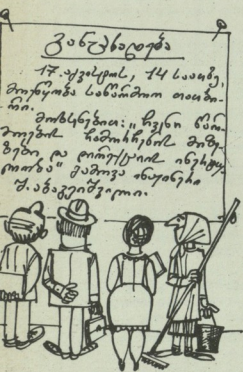 განცხადება
17 აგვისტოს, 14 საათზე,
მოეწყობა საწარმოო თათბი-
რი.
მოხსენებით: „ჩვენი წარ-
მოების ჩამორჩენის მიზე-
ზები და დირექციის ინერტუ-
ლობა“ გამოვა ინჟინერი